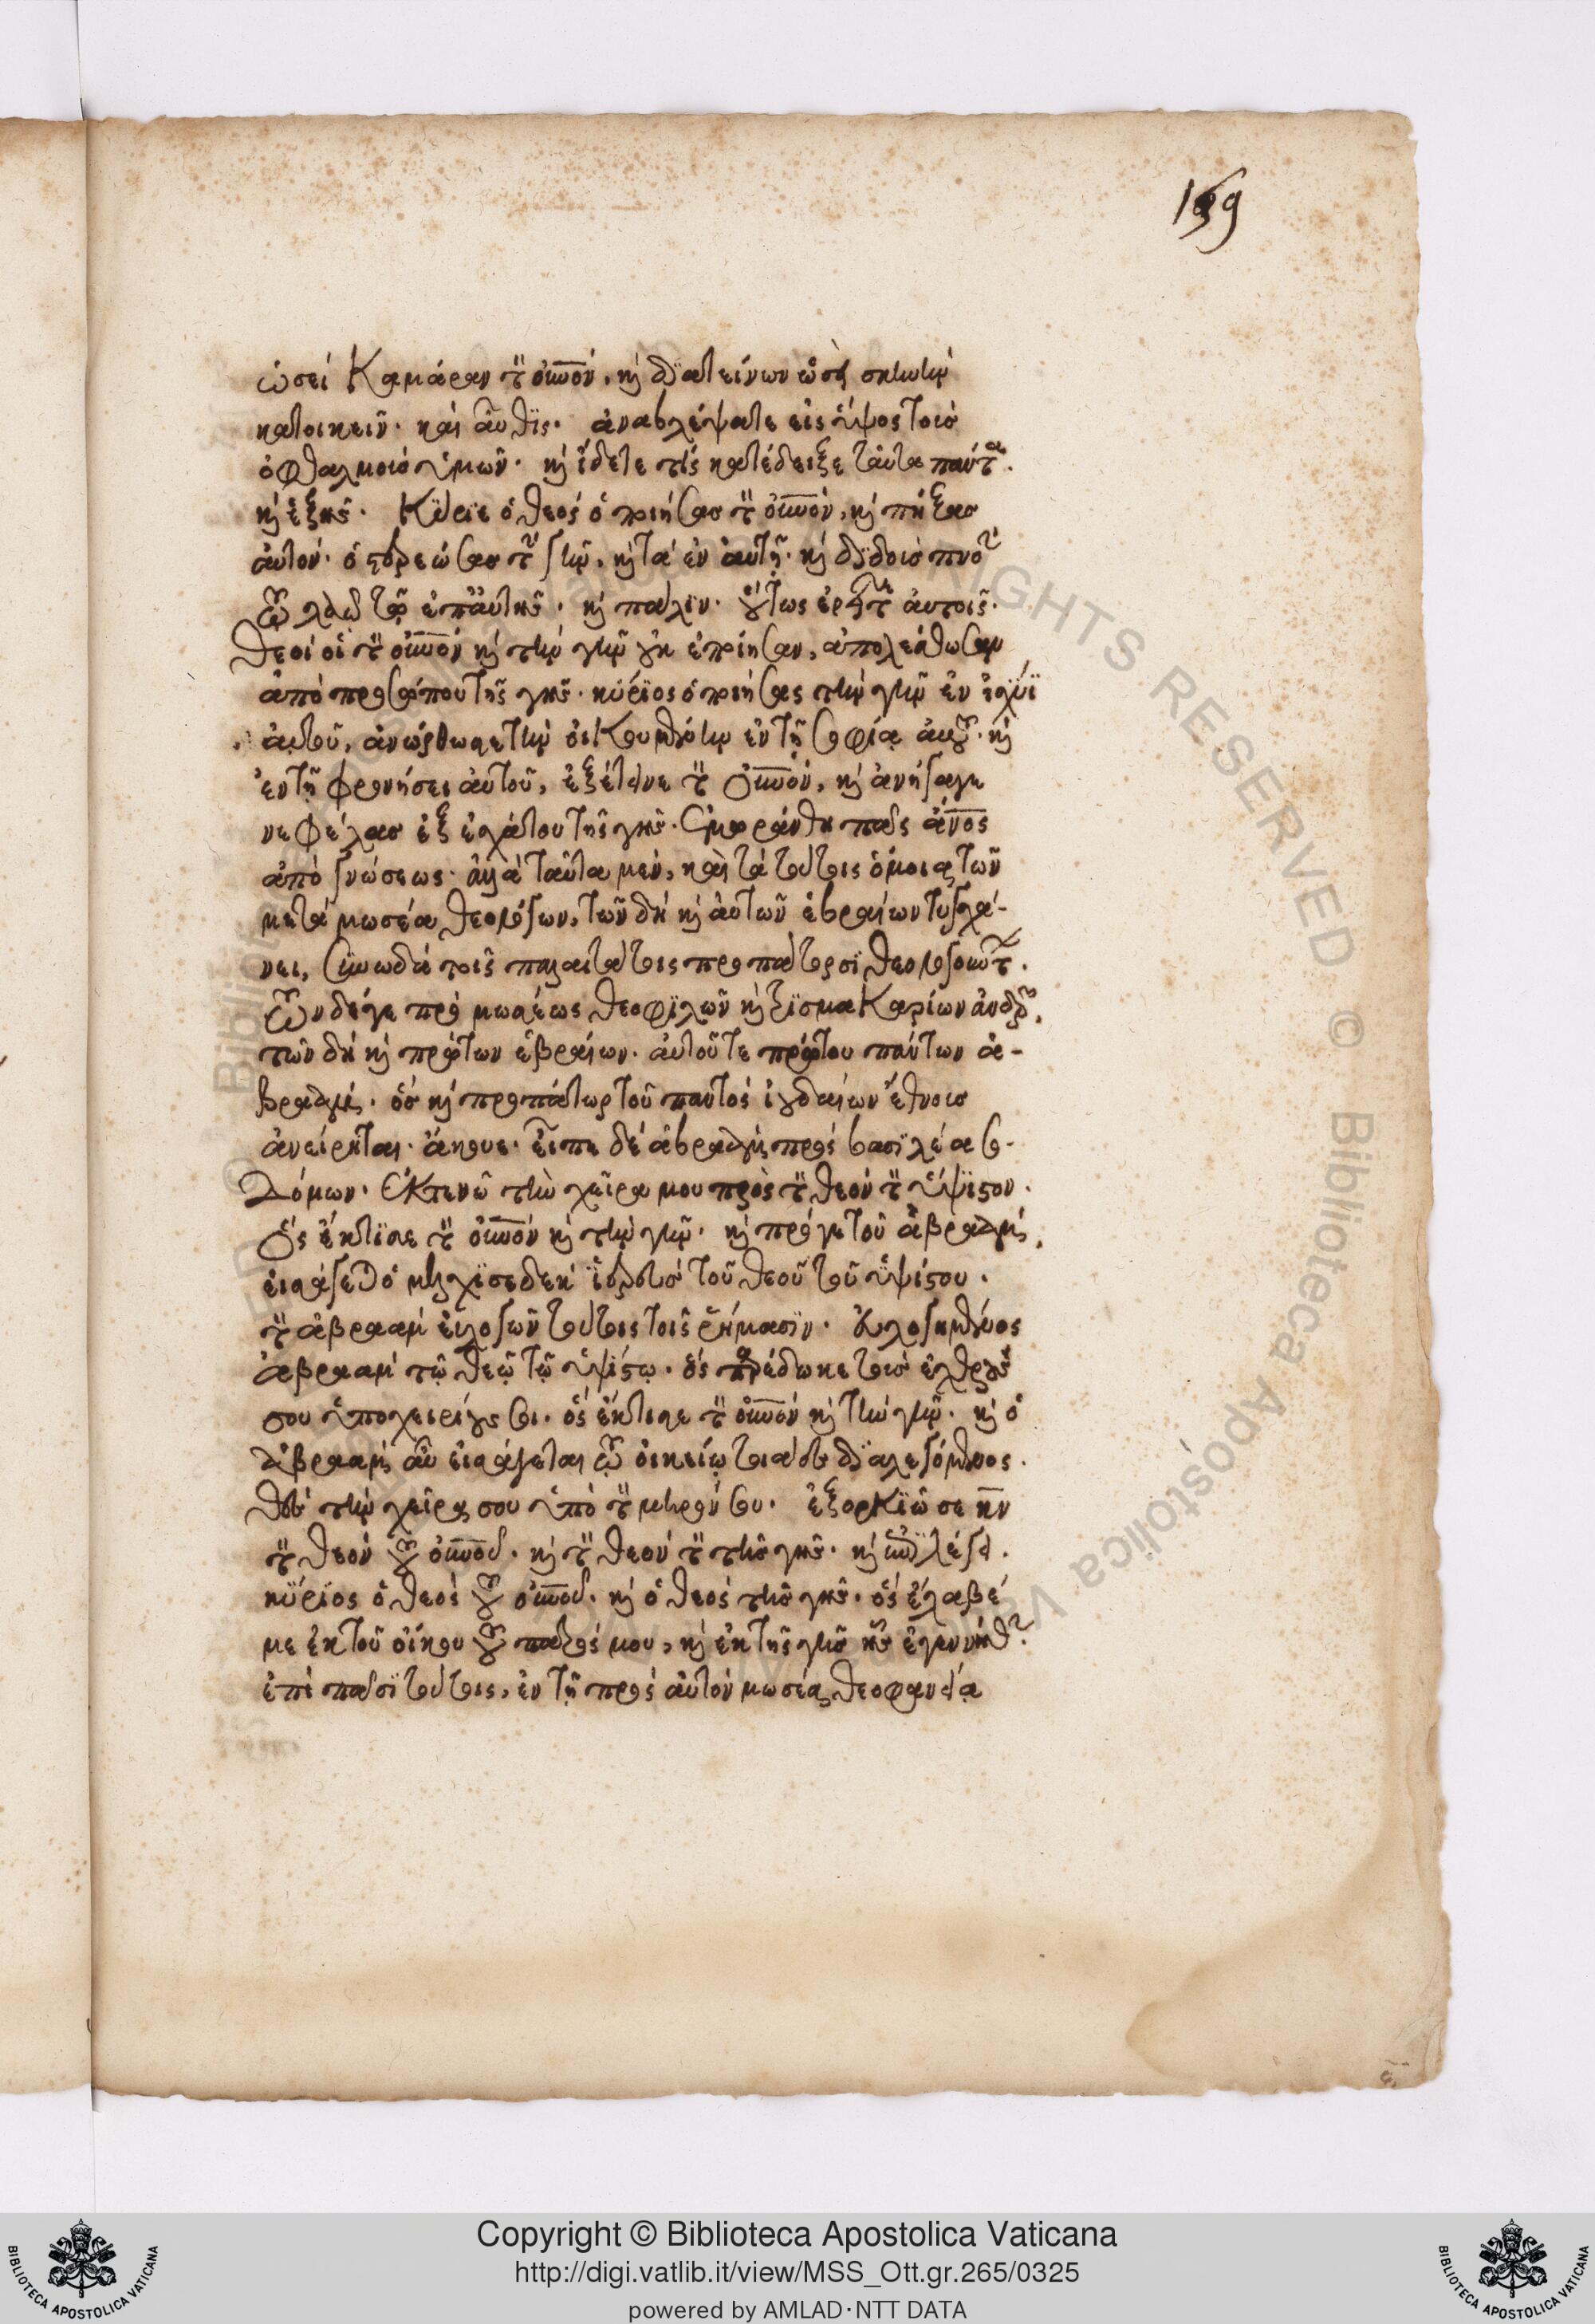 159
ὡσεί καμάραν τὸν οὐνον, κὶ διατείνων ὡς σκηνὴν
κατοικεῖν. καὶ αὖθις. ἀναβλέψατε εἰς ὕψος τοὺς
ὀφθαλμοὺς ὑμῶν. κὶ ἴδετε τίς κατέδειξε ταῦτα πάντα.
κὶ ἑξῆς. Κύριε ὁ θεός ὁ ποιήσας τὸν οὐνον, κὶ πήξας
αὐτόν. ὁ στερεώσας τὴν γῆν, κὶ τά ἐν αὐτῇ. κὶ διδοὺς πνοὴν
τῷ λαῷ τῷ ἐπ' αὐτῆς. κὶ πάλιν. οὕτως ἐρεῖτε αὐτοῖς.
θεοί οἳ τὸν οὐνον κὶ τὴν γῆν οὐκ ἐποίησαν, ἀπολέσθωσαν
ἀπό προσώπου τῆς γῆς. κύριος ὁ ποιήσας τὴν γῆν ἐν ἰσχύϊ
αὐτοῦ, ἀνώρθωσε τὴν οἰκουμένην ἐν τῇ σοφίᾳ αὐτοῦ. κὶ
ἐν τῇ φρονήσει αὐτοῦ, ἐξέτεινε τὸν οὐνον, κὶ ἀνήγαγε
νεφέλας ἐξ ἐσχάτου τῆς γῆς. ἐμωράνθη πᾶς ἄνος
ἀπό γνώσεως. ἀλλὰ ταῦτα μέν, καὶ τά τούτοις ὅμοια τῶν
μετά μωσέα θεολόγων, τῶν δή κὶ αὐτῶν ἑβραίων τυγχά-
νει, συνῳδά τοῖς παλαιτάτοις προπάτορσι θεολογοῦντ.
τῶν δέ γε πρό μωσέως θεοφιλῶν κὶ τρισμακαρίων ἀνδρῶν,
τῶν δή κὶ πρώτων ἑβραίων. αὐτοῦ τε πρώτου πάντων ἀ-
βραάμ. ὅς κὶ προπάτωρ τοῦ παντός ἰουδαίων ἔθνους
ἀνείρηται. ἄκουε. εἶπε δέ ἀβραάμ πρός βασιλέα σο-
δόμων. ἐκτενῶ τὴν χεῖρα μου πρὸς τὸν θεόν τὸν ὕψιστον.
ὅς ἔκτισε τὸν οὐνον κὶ τὴν γῆν. κὶ πρό γε τοῦ ἀβραάμ,
εἰσάγεται ὁ μελχισεδεκ ἱερεύς τοῦ θεοῦ τοῦ ὑψίστου.
τὸν ἀβραάμ εὐλογῶν τούτοις τοῖς ῥήμασιν. εὐλογημένος
ἀβραάμ τῷ θεῷ τῷ ὑψίστῳ. ὅς παρέδωκε τούς ἐχθρούς
σου ὑποχειρίους σοι. ὅς ἔκτισε τὸν οὐνον κὶ τὴν γῆν. κὶ ὁ
ἀβραάμ αὖ εἰσάγεται τῷ οἰκείῳ διαλεγόμενος.
θές τὴν χεῖρα σου ὑπὸ τὸν μηρόν σου. ἐξορκιῶ σε κν
τὸν θεόν τοῦ οὐνου. κὶ τὸν θεόν τῆς γῆς. κὶ ἐπιλέγει.
κύριος ὁ θεός τοῦ οὐνου. κὶ ὁ θεός τῆς γῆς. ὅς ἔλαβέ
με ἐκ τοῦ οἴκου τοῦ πατρός μου, κὶ ἐκ τῆς γῆς ἧς ἐγεννήθην.
ἐπί πᾶσι τούτοις, ἐν τῇ πρός αὐτόν μωσέα θεοφανείᾳ
Copyright © Biblioteca Apostolica Vaticana
http://digi.vatlib.it/view/MSS_Ott.gr.265/0325
powered by AMLAD·NTT DATA